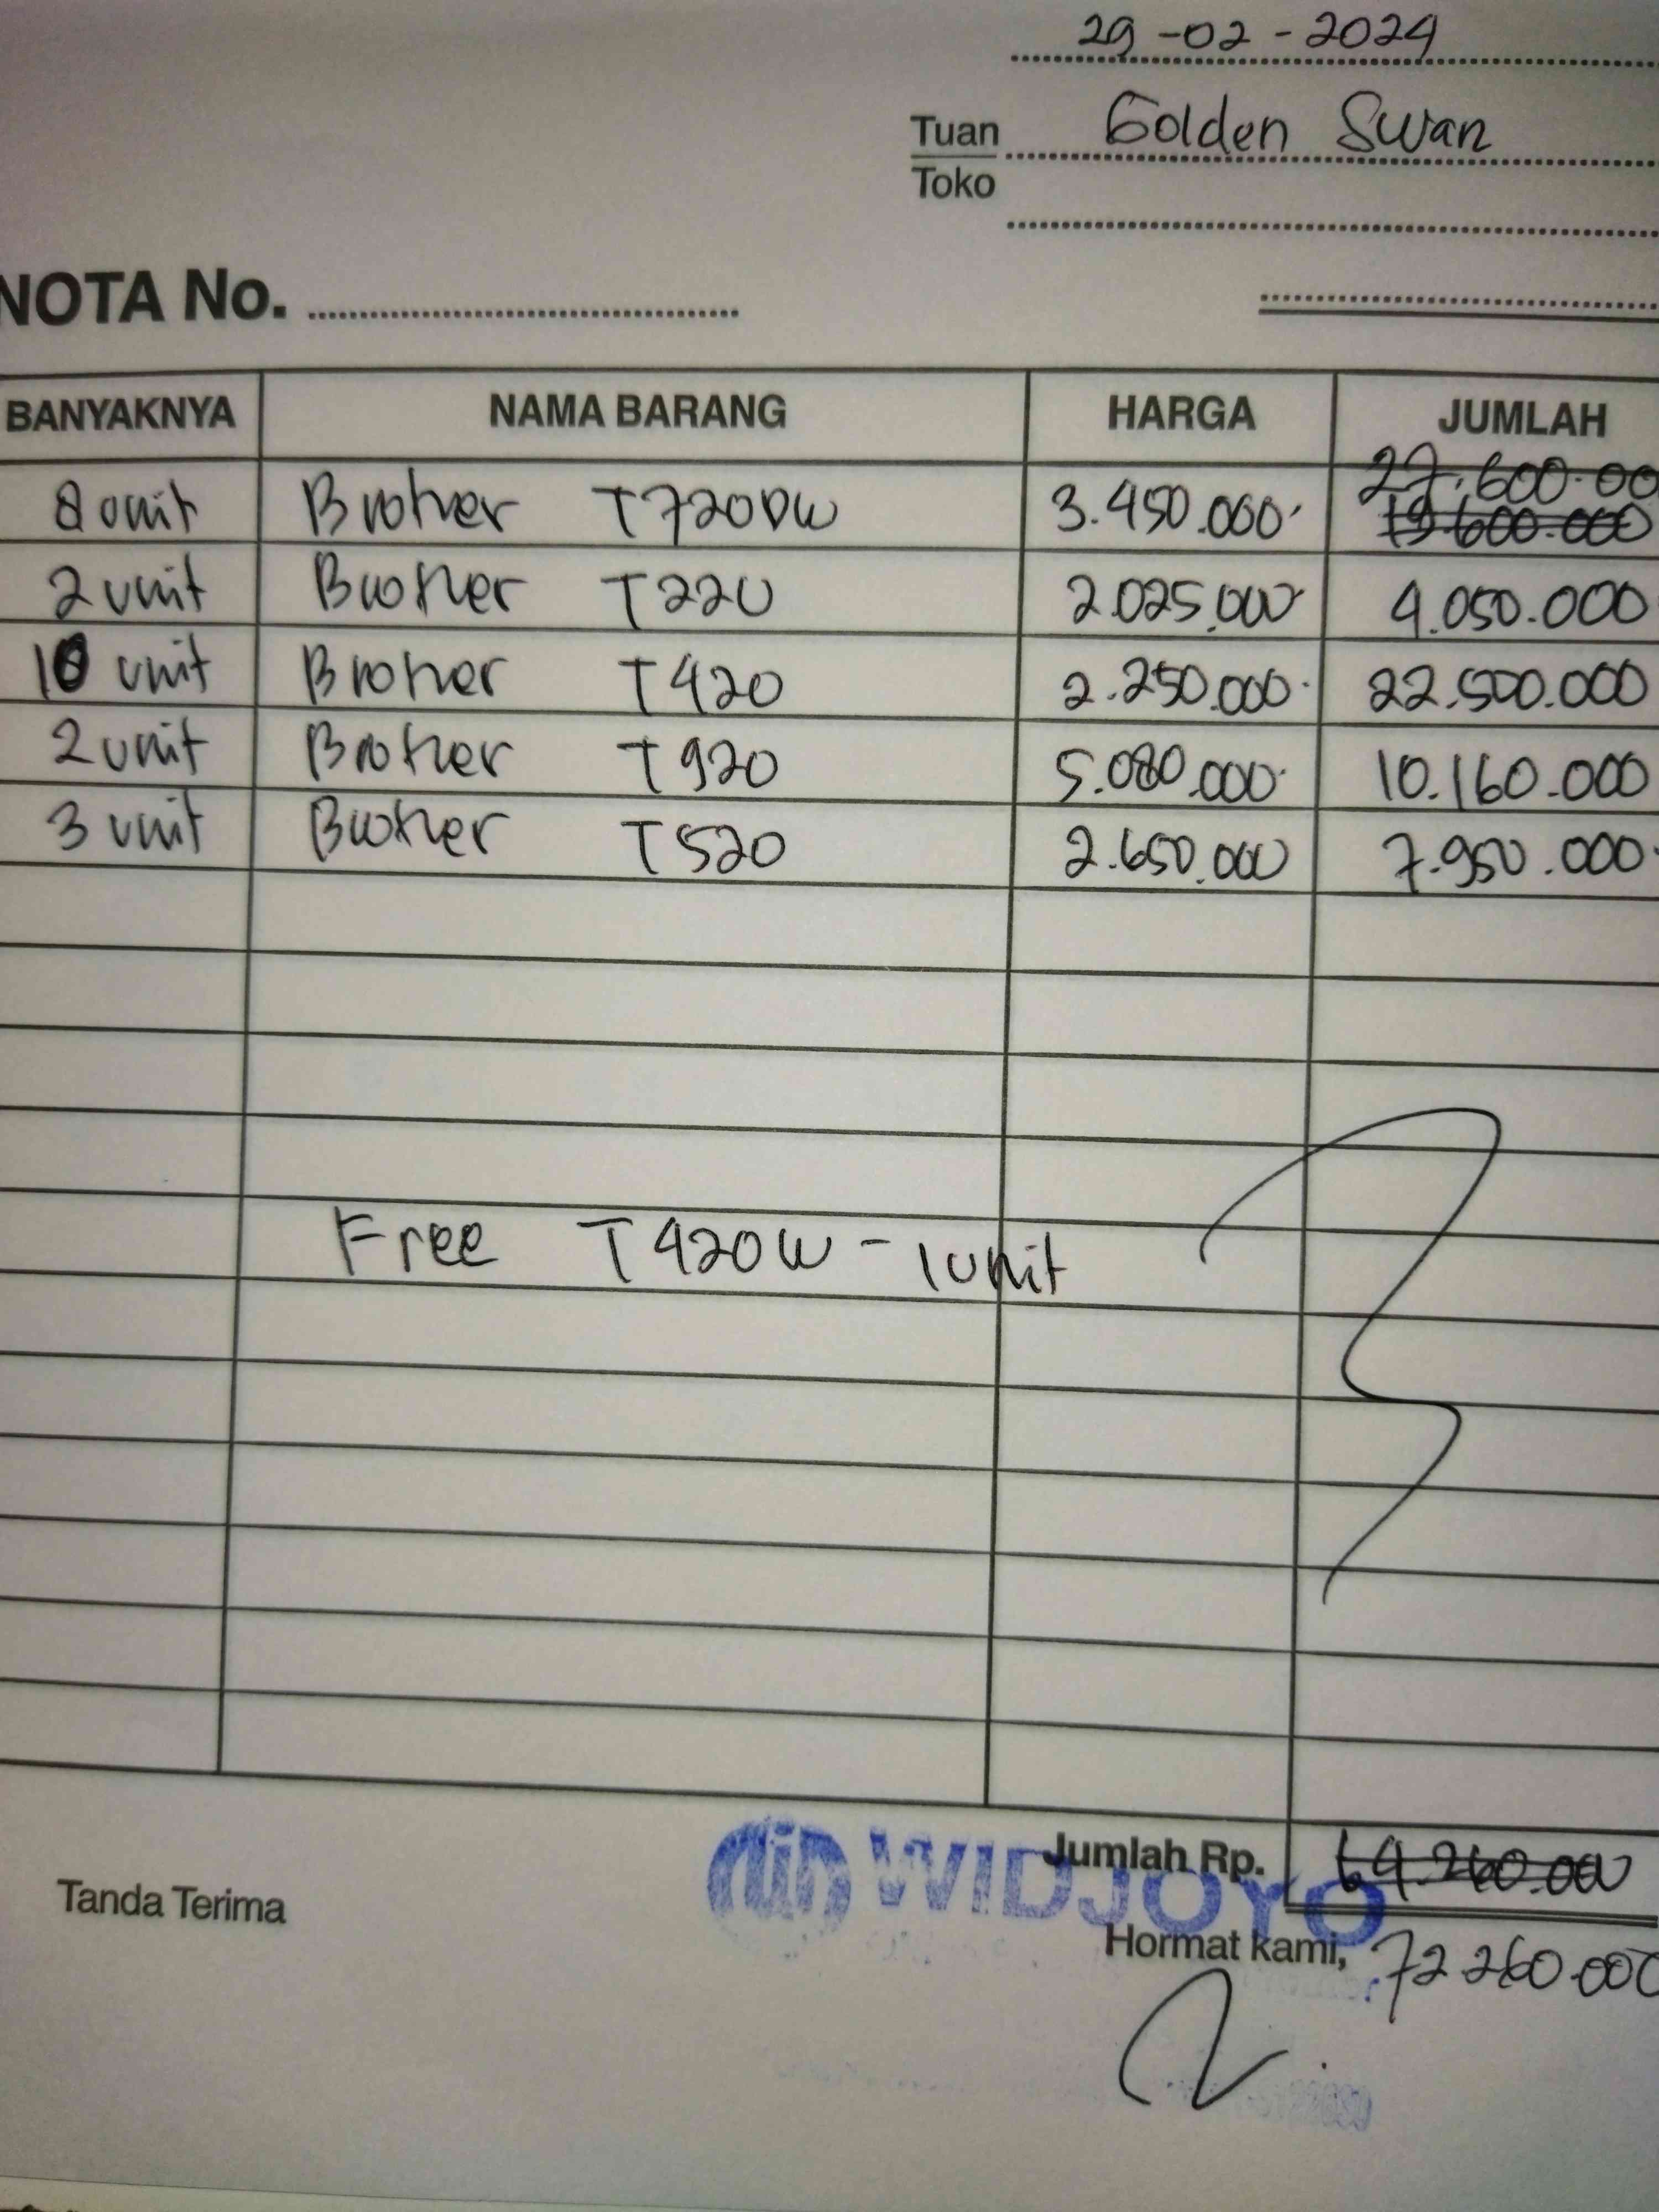 29-02-2024
Tuan Golden Swan
Toko
NOTA No.
BANYAKNYA NAMA BARANG HARGA JUMLAH
27.600.00
8 unit Brother T720DW 3.450.000 19.600.000
2 unit Brother T220 2.025.000 4.050.000
10 unit Brother T420 2.250.000 22.500.000
2 unit Brother T920 5.080.000 10.160.000
3 unit Brother T520 2.650.000 7.950.000
Free T420W - 1 unit
Jumlah Rp. 64.260.000
WIDJOYO
Tanda Terima
Hormat kami, 72.260.000